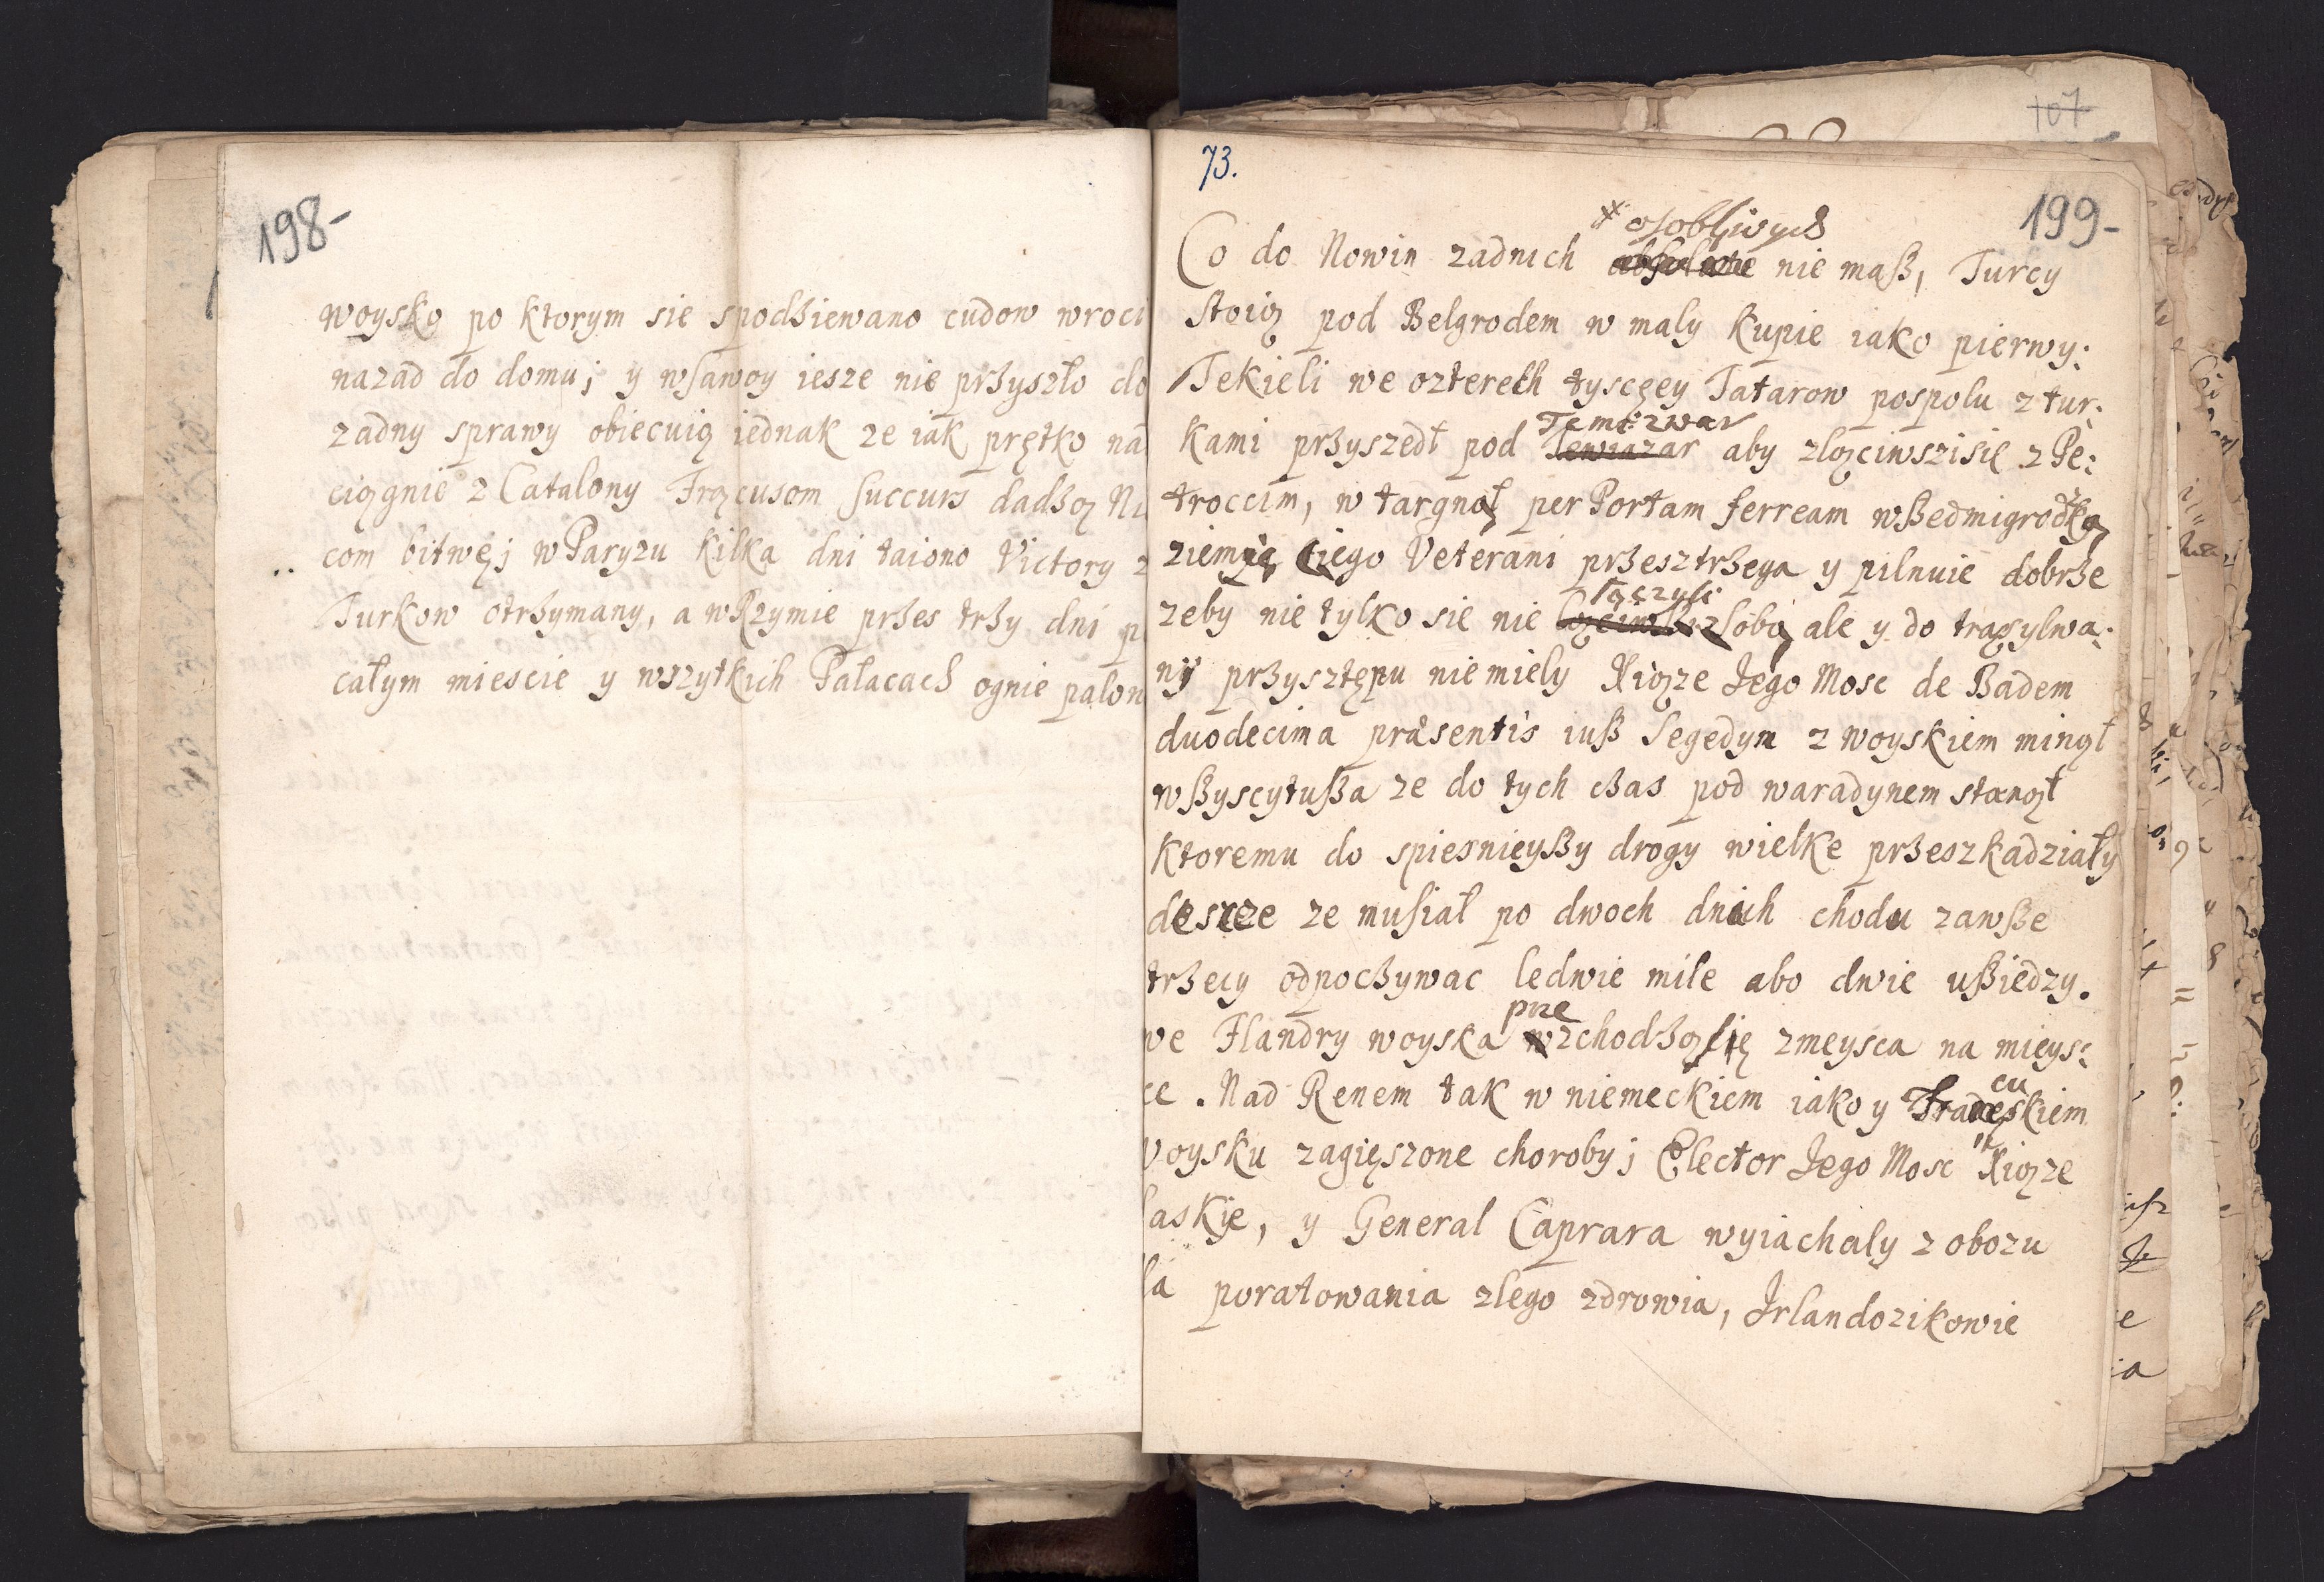 198-
woysko po ktorym sie spodziewano cudow wroci
nazad do domu; y w sawoy iesze nie przyszło do
zadny sprawy obiecuią iednak ze iak prętko na
ciągnie z Catalony Frącusom succurs dadzą Ni
com bitwę; w Paryzu kilka dni taiono Victory z
Turkow otrzymany, a w Rzymie przes trzy dni p
całym miescie y wszytkich Pałacach ognie palon
107
73.
199-
* osobliwych
Co do Nowin zadnich absolutnie nie maß, Turcy
stoią pod Belgrodem w maly kupie iako pierwy:
Tekieli we czterech tysczey Tatarow pospolu z tur:
Temeswar
kami przyszedł pod Tewiazar aby zlączciwszi się z Pe:
troccim, w targnął per Portam ferream w ßedmigrodzką
ziemię tiego Veterani przesztrzega y pilnuie dobrze
łączyli
zeby nie tylko sie nie sobą ale y do trasylwa:
ny przysztępu nie miely Xiąze Jego Mosc de Badem
duodecima præsentis iuß Segedyn z woyskiem minął
wßyscy tußa ze do tych czas pod waradynem stanął
ktoremu do spiesnieyßy drogy wielke przeszkadziały
deszcze ze musiał po dwoch dniach chodu zawße
trzecy odpoczywac ledwie mile abo dwie ußiedzy.
prze
we Flandry woyska wzchodzą się z meysca na mieys:
ce. Nad Renem tak w niemeckiem iako y Francuskiem
cu
voysku zagięszone choroby; Elector Jego Mosc Xiąze
saskie, y General Caprara wyiachaly z obozu
la poratowania zlego zdrowia, Jrlandczikowie